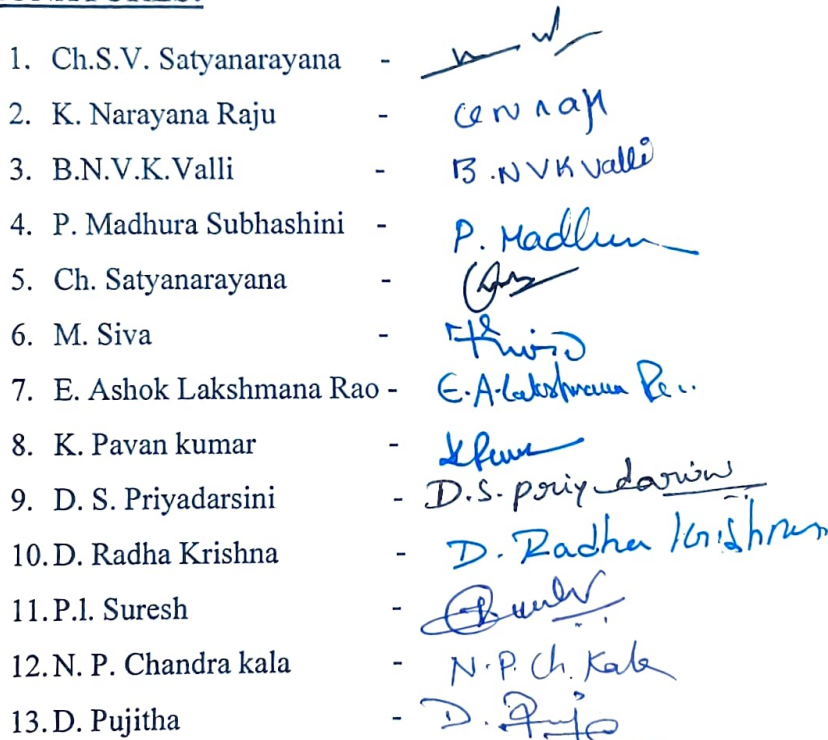 1. Ch.S.V. Satyanarayana -
2. K. Narayana Raju -
3. B.N.V.K.Valli - B.NVKValli
4. P. Madhura Subhashini - P. Madhu
5. Ch. Satyanarayana -
6. M. Siva -
7. E. Ashok Lakshmana Rao - E.A.Lakshmana
8. K. Pavan kumar -
9. D. S. Priyadarsini - D.S. priyadarsini
10. D. Radha Krishna - D. Radha Krishna
11. P.l. Suresh -
12. N. P. Chandra kala - N.P. Ch. Kala
13. D. Pujitha - D. Puji